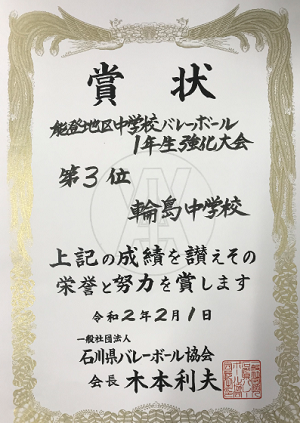 賞状
能登地区中学校バレーボール
1年生強化大会
第3位
輪島中学校
上記の成績を讃えその
栄誉と努力を賞します
令和2年2月1日
一般社団法人
石川県バレーボール協会
会長 木本利夫